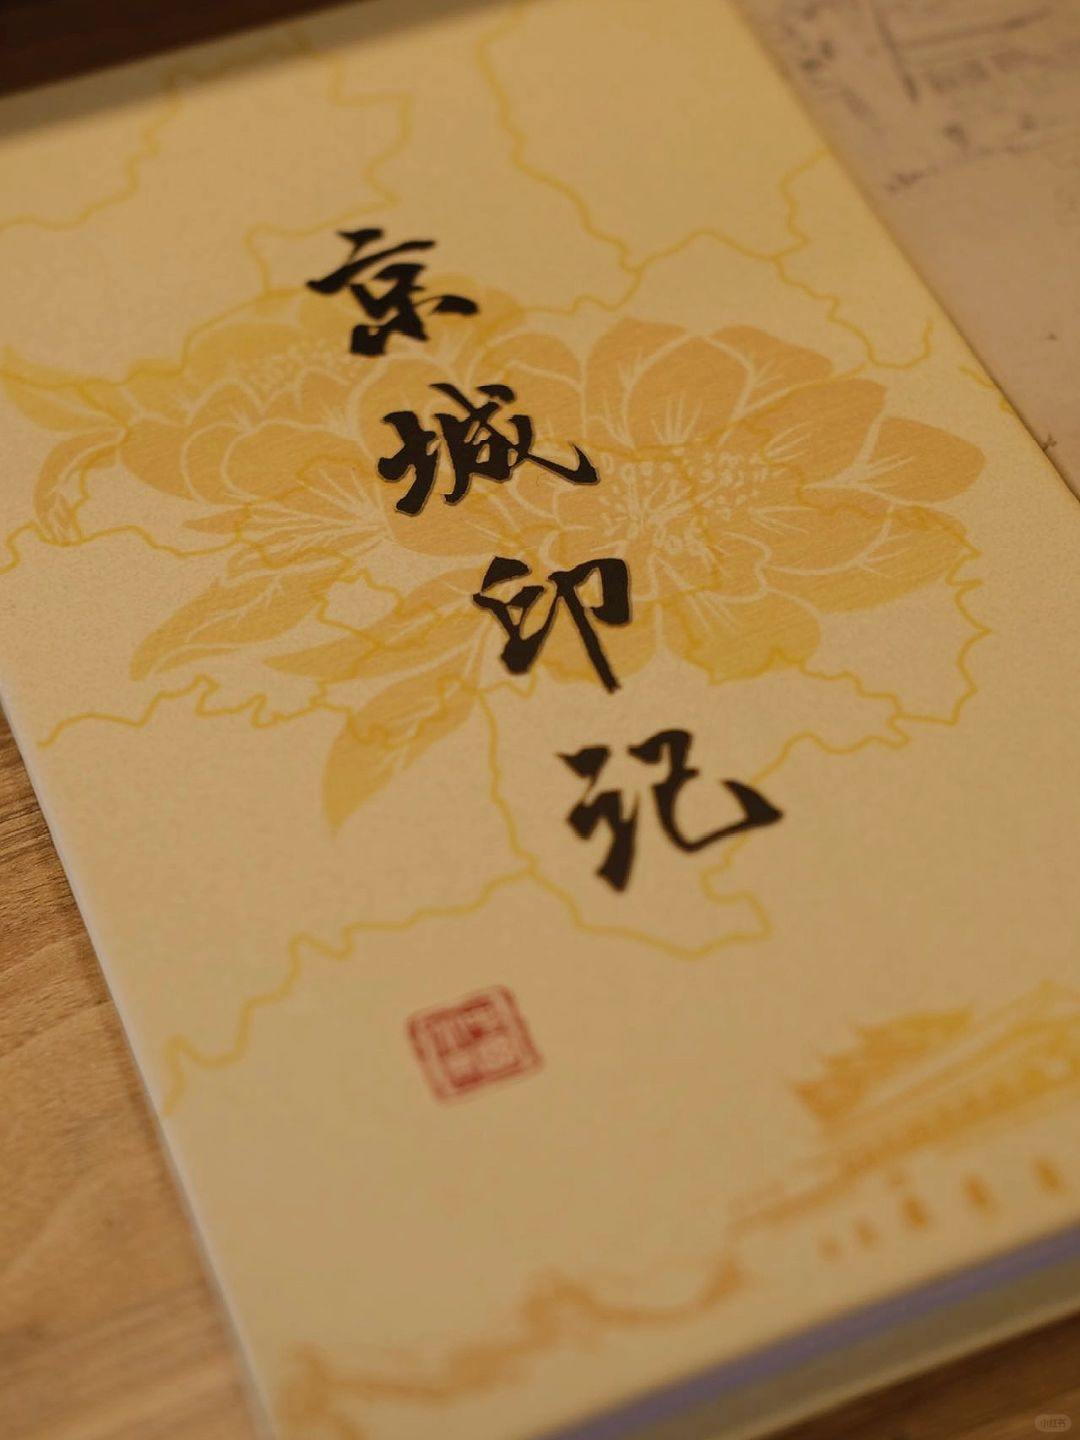 京城印记
小红书